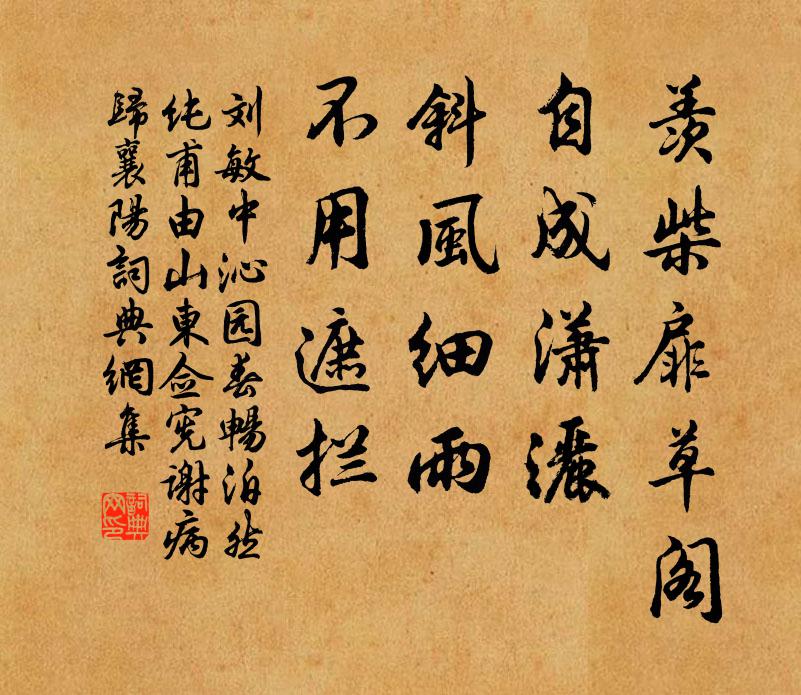 羨柴扉草阁
自成瀟灑
斜風细雨
不用遮拦
刘敏中沁园春暢泊然
纯甫由山東佥宪謝病
歸襄陽詞典網集
詞典网印